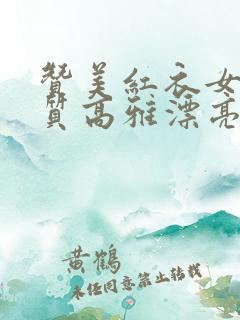 赞美红衣女
质高雅漂亮
黄鹤
未经同意禁止转载